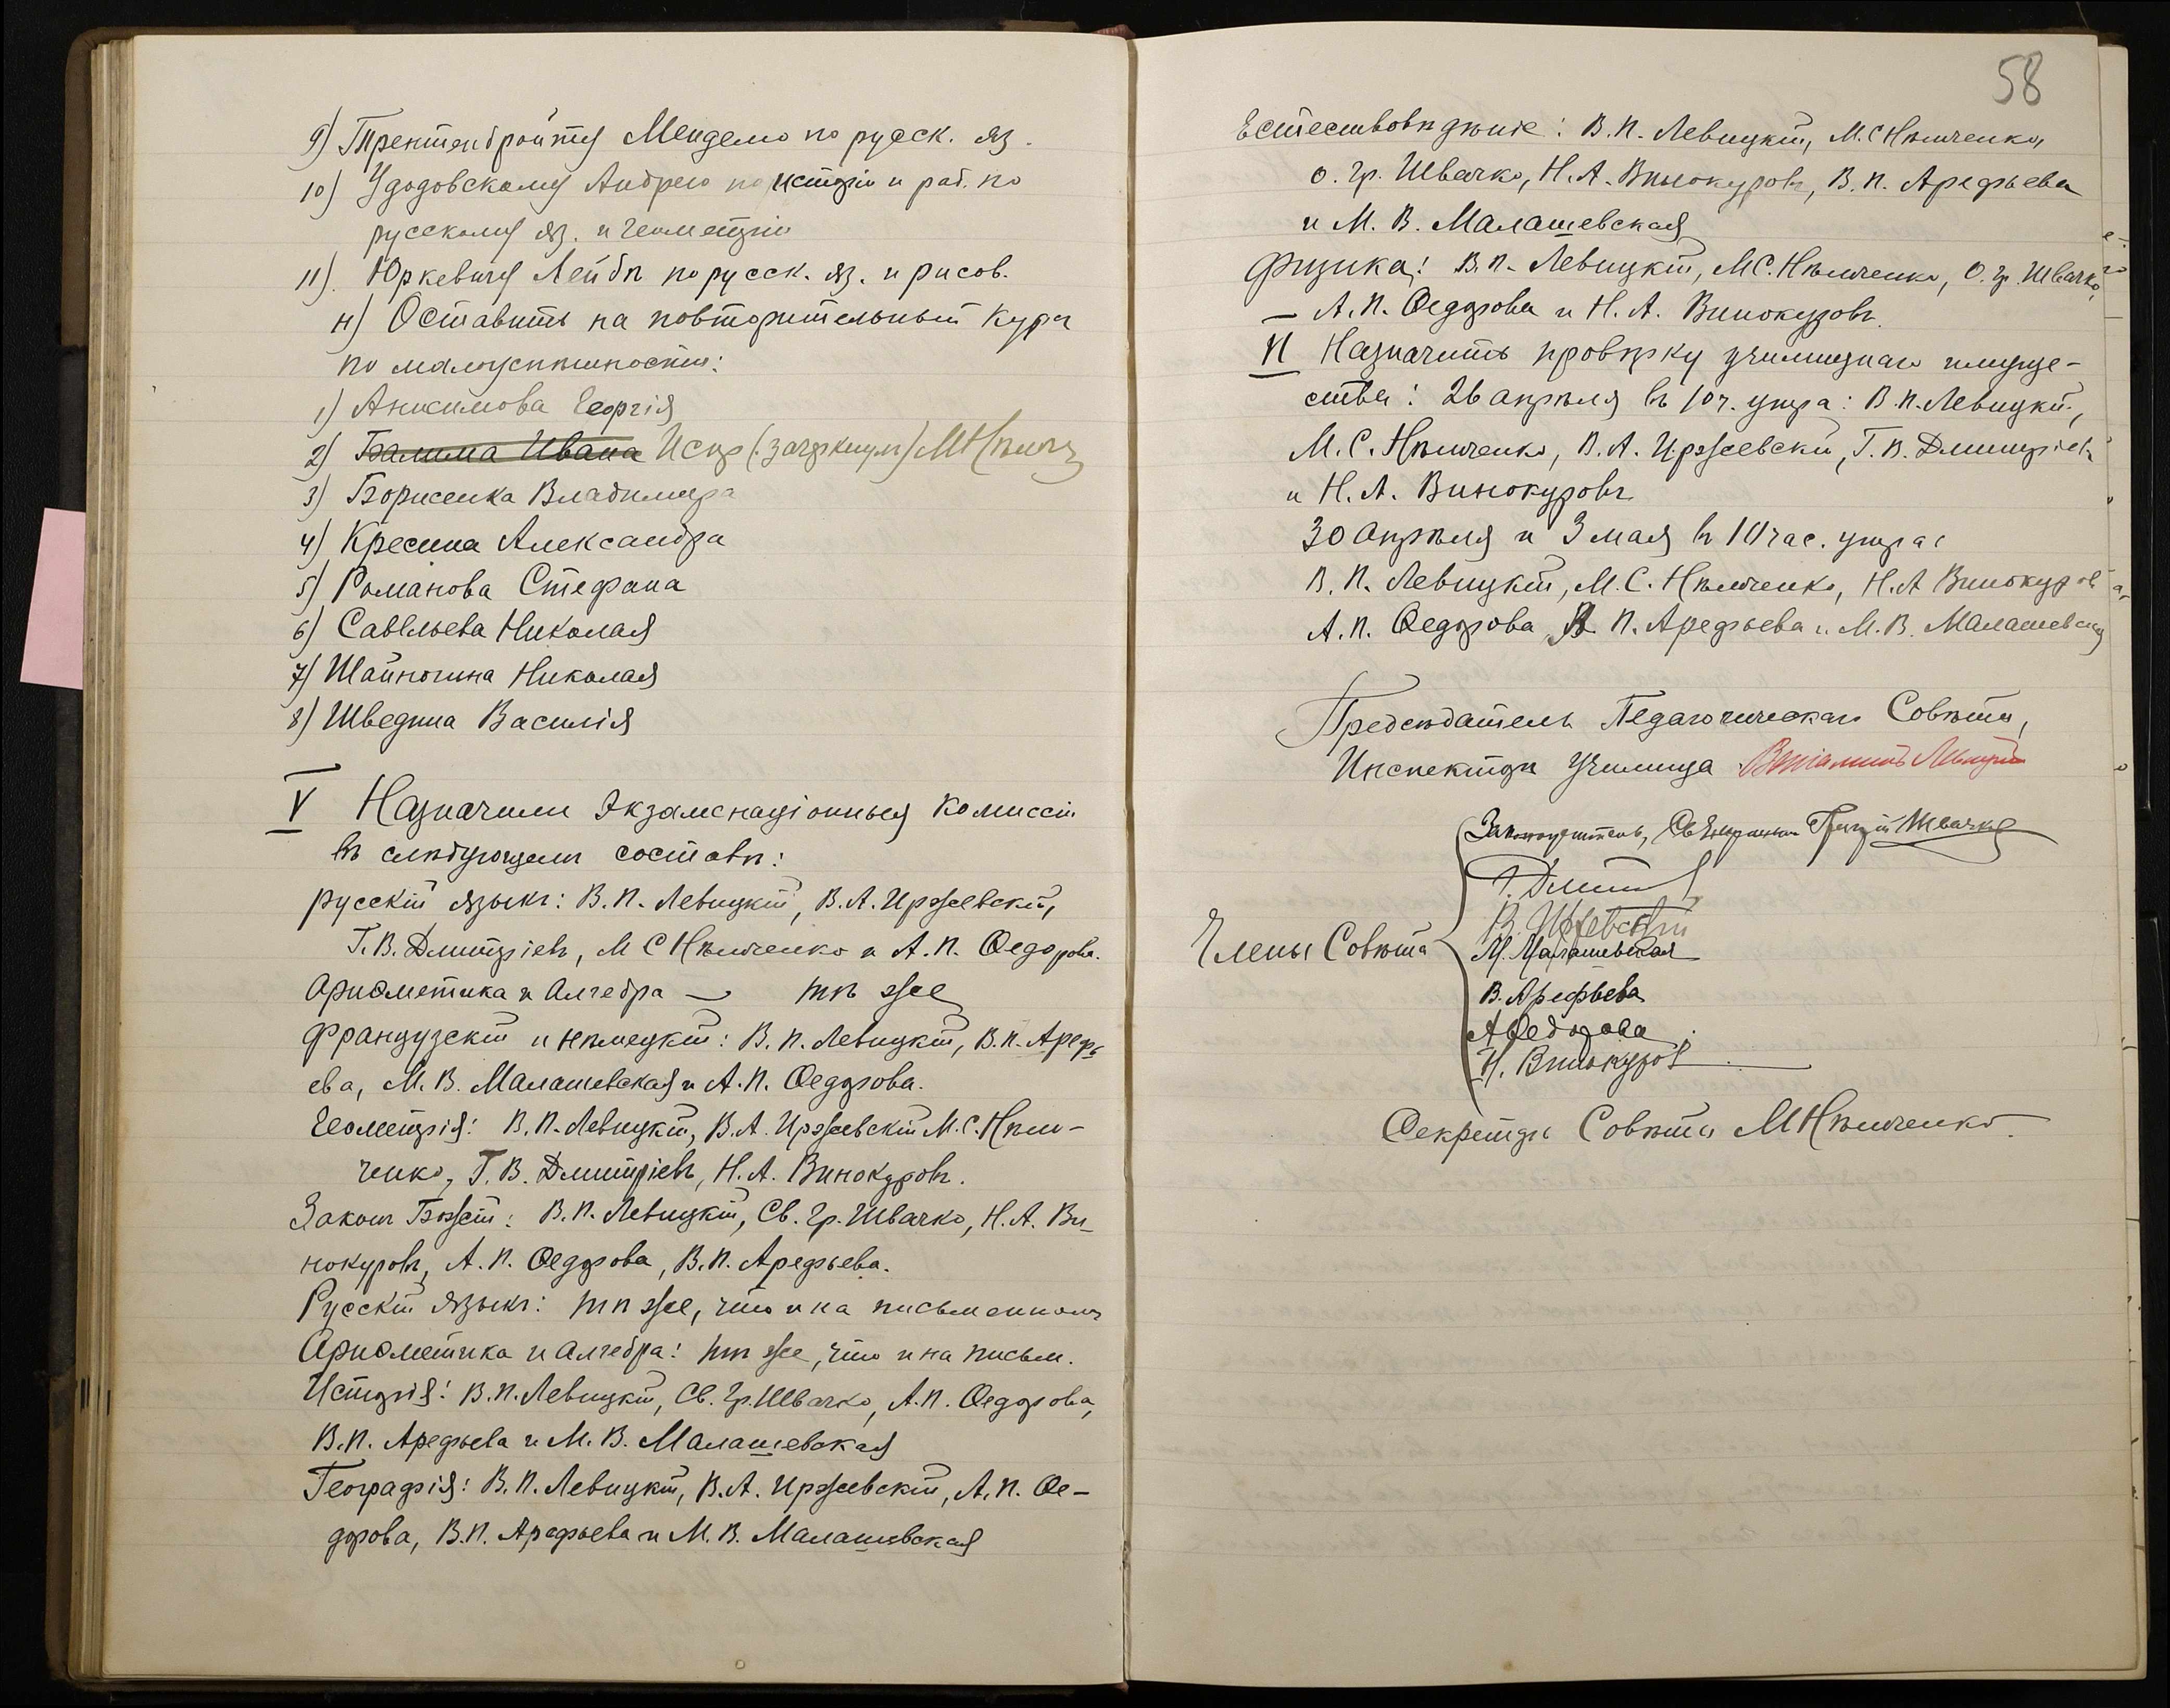 9) Тректенбройту Менделю по русск. яз.
10) Удодовскому Андрею по исторiи и раб. по
русскому яз. и геометрiи
11). Юркевичу Лейбѣ по русск. яз. и рисов.
н) Оставить на повторительный курсъ
по малоуспѣшности:
1) Анисимова Георгiя
2) Балима Ивана Испр (зачеркнут) МНѣмч
3) Борисенка Владимира
4) Кресина Александра
5) Романова Стефана
6) Савельева Николая
7) Шайногина Николая
8) Шведина Василiя
V Назначили экзаменацiонныя комиссiи
въ слѣдующемъ составѣ:
русскiй языкъ: В. П. Левицкiй, В. А. Иржевскiй,
Г. В. Дмитрiевъ, М С Нѣмченко и А. П. Ѳедорова.
Ариѳметика и Алгебра — тѣ же
Французскiй и нѣмецкiй: В. П. Левицкiй, В. П. Арефь
ева, М. В. Малашевская и А. П. Ѳедорова.
Геометрiя: В. П. Левицкiй, В. А. Иржевскiй М. С. Нѣм-
ченко, Г. В. Дмитрiевъ, Н. А. Винокуровъ.
Законъ Божiй: В. П. Левицкiй, Св. Гр. Швачко, Н. А. Ви-
нокуровъ, А. П. Ѳедорова, В. П. Арефьева.
Русскiй языкъ: тѣ же, что и на письменномъ
Ариѳметика и алгебра: тѣ же, что и на письм.
Исторiя: В. П. Левицкiй, Св. Гр. Швачко, А. П. Ѳедорова,
В. П. Арефьева и М. В. Малашевская
Географiя: В. П. Левицкiй, В. А. Иржевскiй, А. П. Ѳе-
дорова, В. П. Арефьева и М. В. Малашевская
58
Естествовѣдѣнiе: В. П. Левицкiй, М. С Нѣмченко,
о. Гр. Швачко, Н. А. Винокуровъ, В. П. Арефьева
и М. В. Малашевская
Физика: В. П. Левицкiй, М С. Нѣмченко, О. Гр. Швачко,
— А. П. Ѳедорова и Н. А. Винокуровъ.
VI Назначить провѣрку училищнаго имуще-
ства: 26 апрѣля въ 10 ч. утра: В. П. Левицкiй,
М. С. Нѣмченко, В. А. Иржевскiй, Г. В. Дмитрiевъ
и Н. А. Винокуровъ
30 Апрѣля и 3 мая въ 10 час. утра:
В. П. Левицкiй, М. С. Нѣмченко, Н. А Винокуровъ
А. П. Ѳедорова, В. П. Арефьева и М. В. Малашевская
Предсѣдатель Педагогическаго Совѣта,
Инспекторъ Училища Венiаминъ Левицкiй
Законоучитель, Священникъ Григорiй Швачко
Г. Дмит
В. Иржевскiй
Члены Совѣта
М. Малашевская
В. Арефьева
А Ѳедорова
Н. Винокуров
Секретарь Совѣта МНѣмченко.